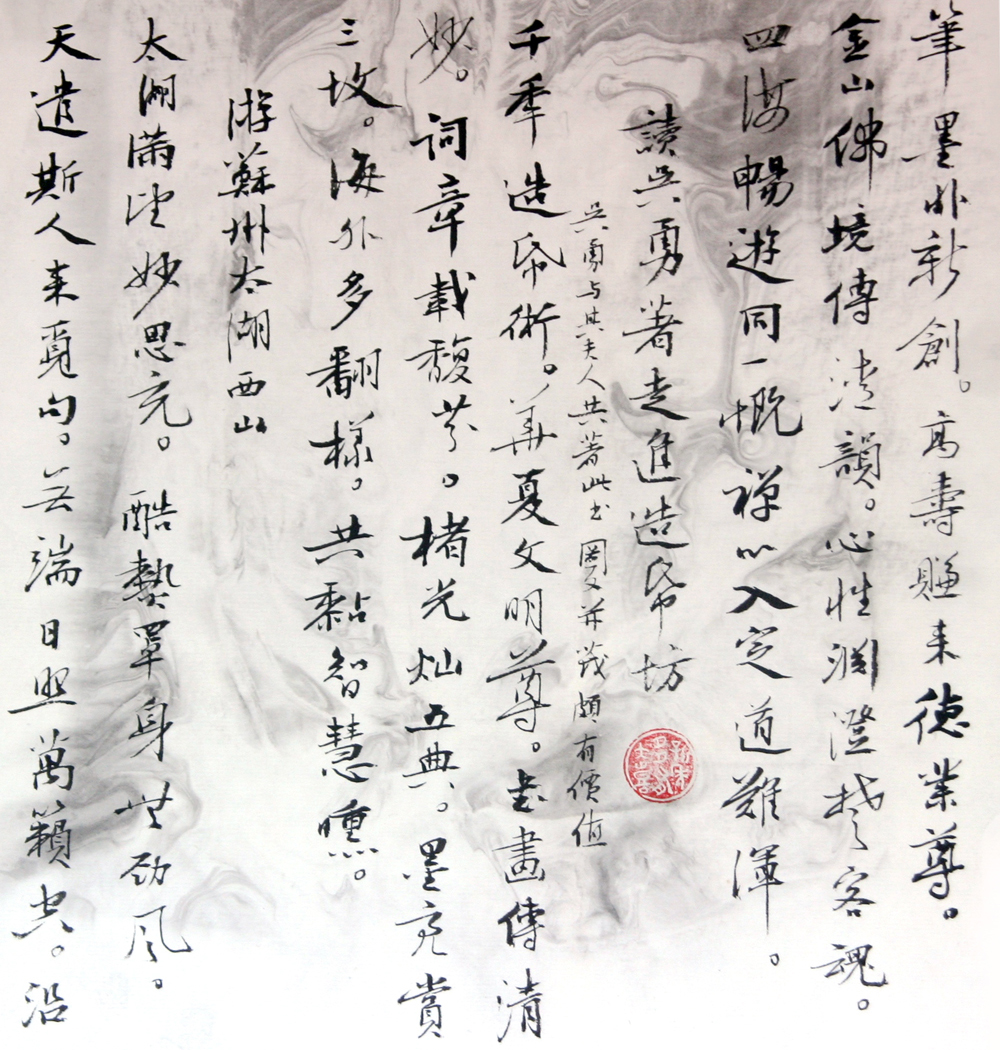 筆墨非新創。高壽賜來德業尊。
金山佛境傳清韻。心性淵澄攪客魂。
四海暢遊同一概 禪心入定道難渾。
讀吳勇著走進造紙坊
吳勇与其夫人共著此书 圖文并茂頗有價值
千年造紙術。華夏文明尊。書畫傳清
妙。詞章載馥芬。楮光灿五典。墨亮賞
三坟。海外多翻樣。共黏智慧曛。
游蘇州太湖西山
太湖滿望妙思充。酷熱罩身無勁風。
天遣斯人来覓句。無端日照萬籟空。沿